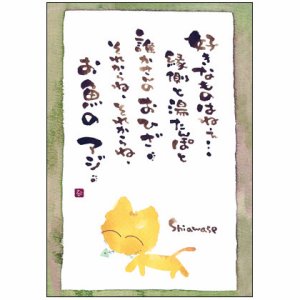 好きなものはねぇ…
縁側と湯たんぽと
誰かさんのおひざ。
それからね、それからね、
お魚のアジ。
Shiawase